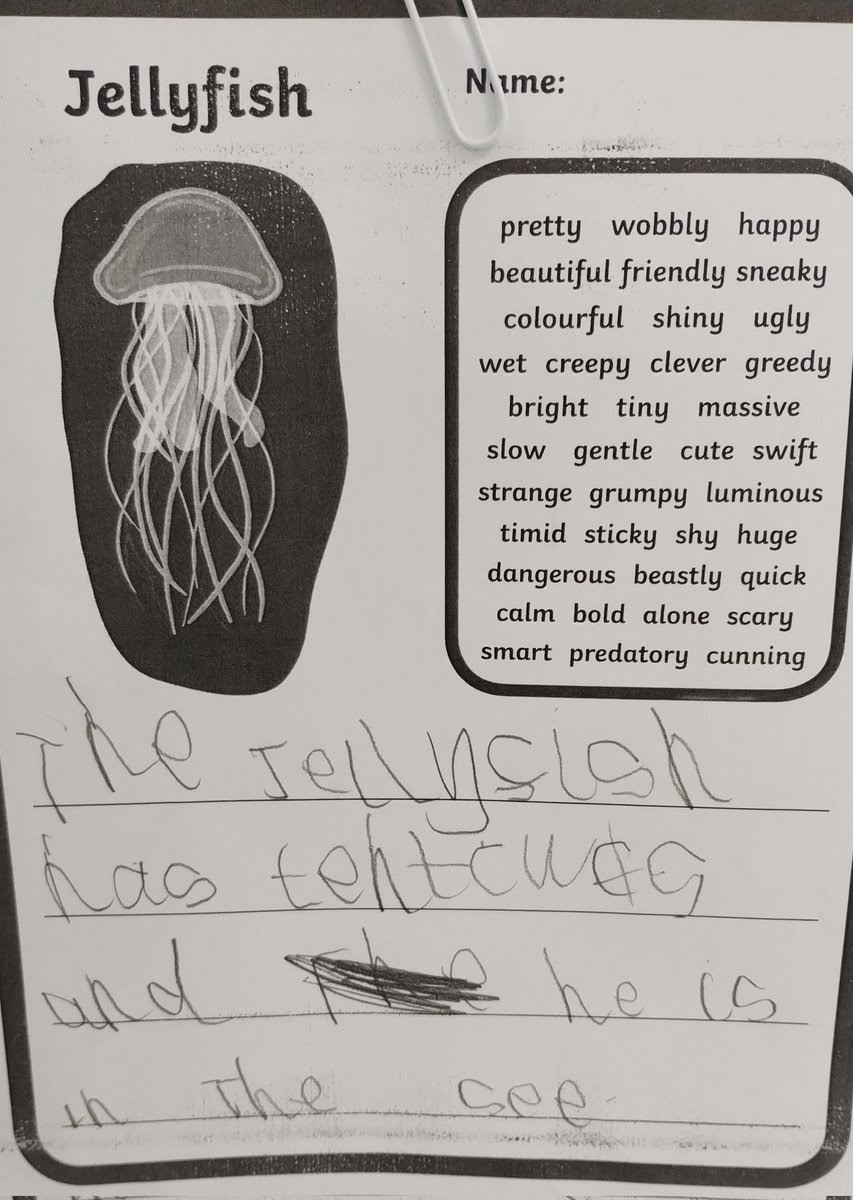 Jellyfish
Name:
pretty wobbly happy
beautiful friendly sneaky
colourful shiny ugly
wet creepy clever greedy
bright tiny massive
slow gentle cute swift
strange grumpy luminous
timid sticky shy huge
dangerous beastly quick
calm bold alone scary
smart predatory cunning
The Jellysish
has
and he is
in The see.